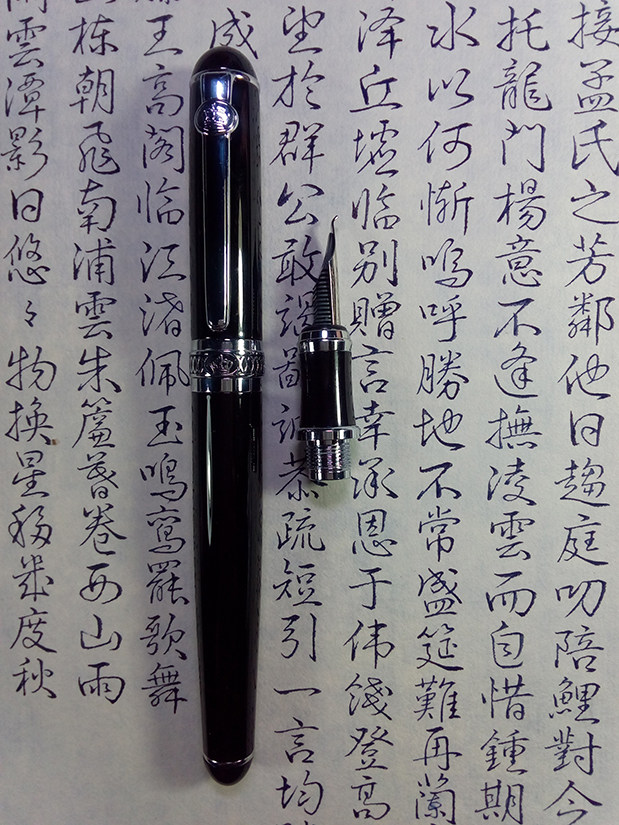 接孟氏之芳鄰他日趨庭叨陪鯉對今
托龍門楊意不逢撫凌雲而自惜鍾期
水以何慚嗚呼勝地不常盛筵難再蘭
泽丘墟临別贈言幸承恩于伟餞登高
望於群公敢竭鄙誠恭疏短引一言均
成
王高阁临江渚佩玉鳴鸾罷歌舞
栋朝飛南浦雲朱簾暮卷西山雨
雲潭影日悠々物換星移幾度秋